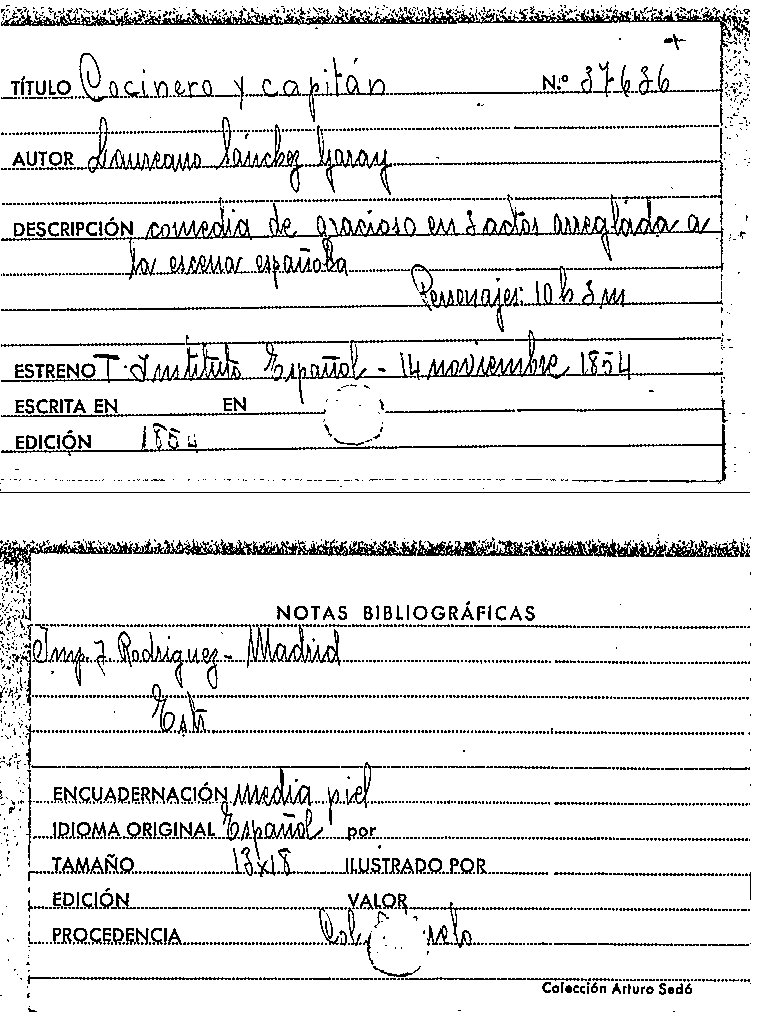 TÍTULO Cocinero y capitán N.º 37636
AUTOR Laureano Sánchez Garay
DESCRIPCIÓN comedia de gracioso en 3 actos arreglada a
la escena española
Personajes: 10 h 3 m
ESTRENO T. Instituto Español - 14 noviembre 1854
ESCRITA EN EN
EDICIÓN 1854
NOTAS BIBLIOGRÁFICAS
Imp. J. Rodriguez - Madrid
ENCUADERNACIÓN media piel
IDIOMA ORIGINAL Español por
TAMAÑO 13x18 ILUSTRADO POR
EDICIÓN VALOR
PROCEDENCIA
Colección Arturo Sedó